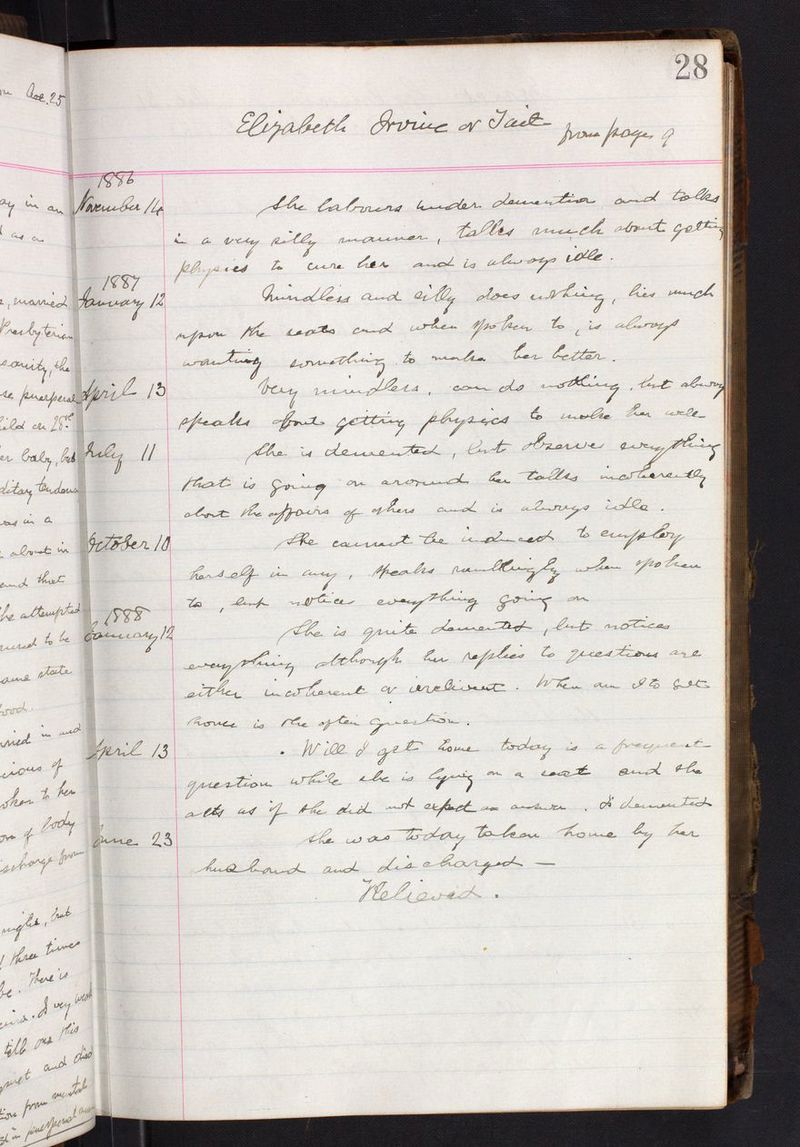 28
Elizabeth Irvine or Tait from page 9
1886
November 14 She labours under dementia and talks
in a very silly manner, talks much about getting
physics to cure her and is always idle.
1887
January 12 Mindless and silly does nothing, lies much
upon the seats and when spoken to, is always
wanting something to make her better.
April 13 Very mindless, can do nothing, but always
speaks about getting physics to make her well
July 11 She is demented, but observes everything
that is going on around her talks incoherently
about the affairs of others and is always idle.
October 10 She cannot be induced to employ
herself in any, speaks ramblingly when spoken
to, but notices everything going on
1888
January 12 She is quite demented, but notices
everything although her replies to questions are
either incoherent or irrelevant. When am I to get
home is the often question.
April 13 Will I get home today is a frequent
question while she is lying on a seat and she
acts as if she did not expect an answer. Is demented
June 23 She was today taken home by her
husband and discharged —
Relieved.
25
ay in an
as a
married
Presbyterian
sanity, she
puerperal
child on 28th
her baby, but
was in a
about in
and that
he attempted
to be
same state
and
of
spoken to her
of body
from
night, but
three times
There is
very weak
tell me this
quiet and
from
puerperal